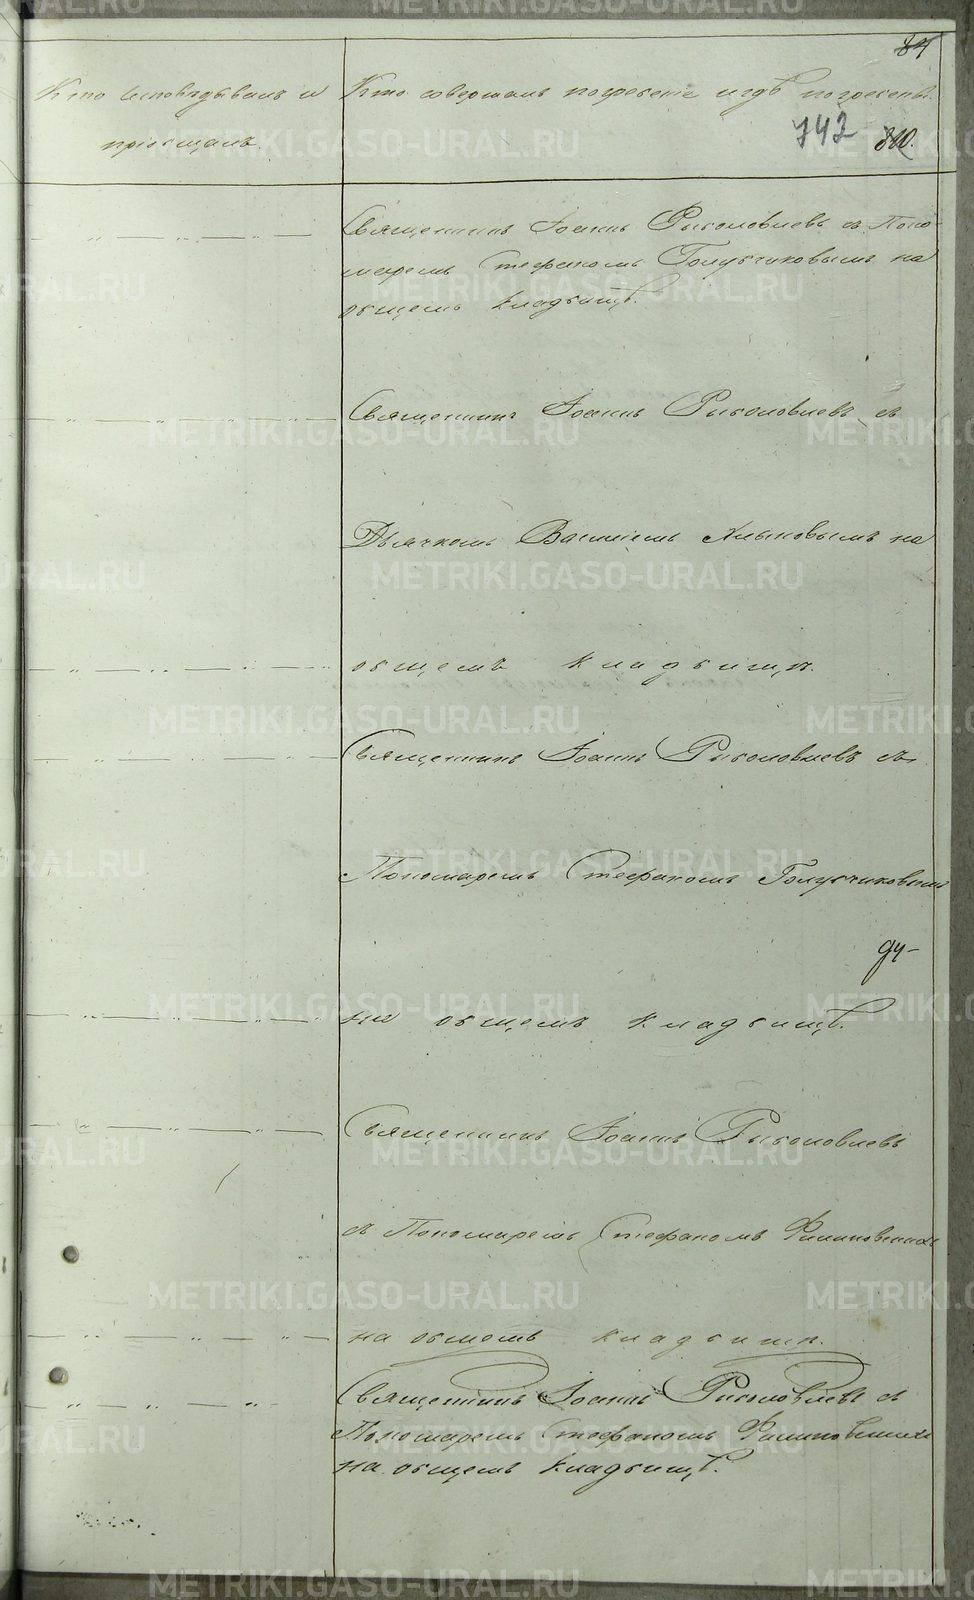 84
Кто исповѣдывалъ и
пріобщалъ.
Кто совершалъ погребеніе и гдѣ погребены.
742
Священникъ Іоаннъ Рыболовлевъ съ Поно-
маремъ Стефаномъ Голубчиковымъ на
общемъ кладбищѣ.
Священникъ Іоаннъ Рыболовлевъ съ
Дьячкомъ Василіемъ на
общемъ кладбищѣ.
Священникъ Іоаннъ Рыболовлевъ съ
Пономаремъ Стефаномъ Голубчиковымъ
на общемъ кладбищѣ.
Священникъ Іоаннъ Рыболовлевъ
съ Пономаремъ Стефаномъ
на общемъ кладбищѣ.
Священникъ Іоаннъ Рыболовлевъ съ
Пономаремъ Стефаномъ
на общемъ кладбищѣ.
METRIKI.GASO-URAL.RU